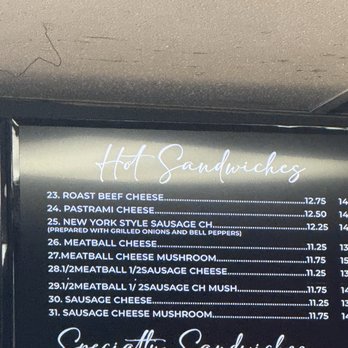 Hot Sandwiches
23. ROAST BEEF CHEESE...............12.75 14
24. PASTRAMI CHEESE...............12.50 14
25. NEW YORK STYLE SAUSAGE CH...............12.25 14
(PREPARED WITH GRILLED ONIONS AND BELL PEPPERS)
26. MEATBALL CHEESE...............11.25 13
27.MEATBALL CHEESE MUSHROOM...............11.75 15
28.1/2MEATBALL 1/2SAUSAGE CHEESE...............11.25 13
29.1/2MEATBALL 1/ 2SAUSAGE CH MUSH...............11.75 14
30. SAUSAGE CHEESE...............11.25 13
31. SAUSAGE CHEESE MUSHROOM...............11.75 14
Specialty Sandwiches